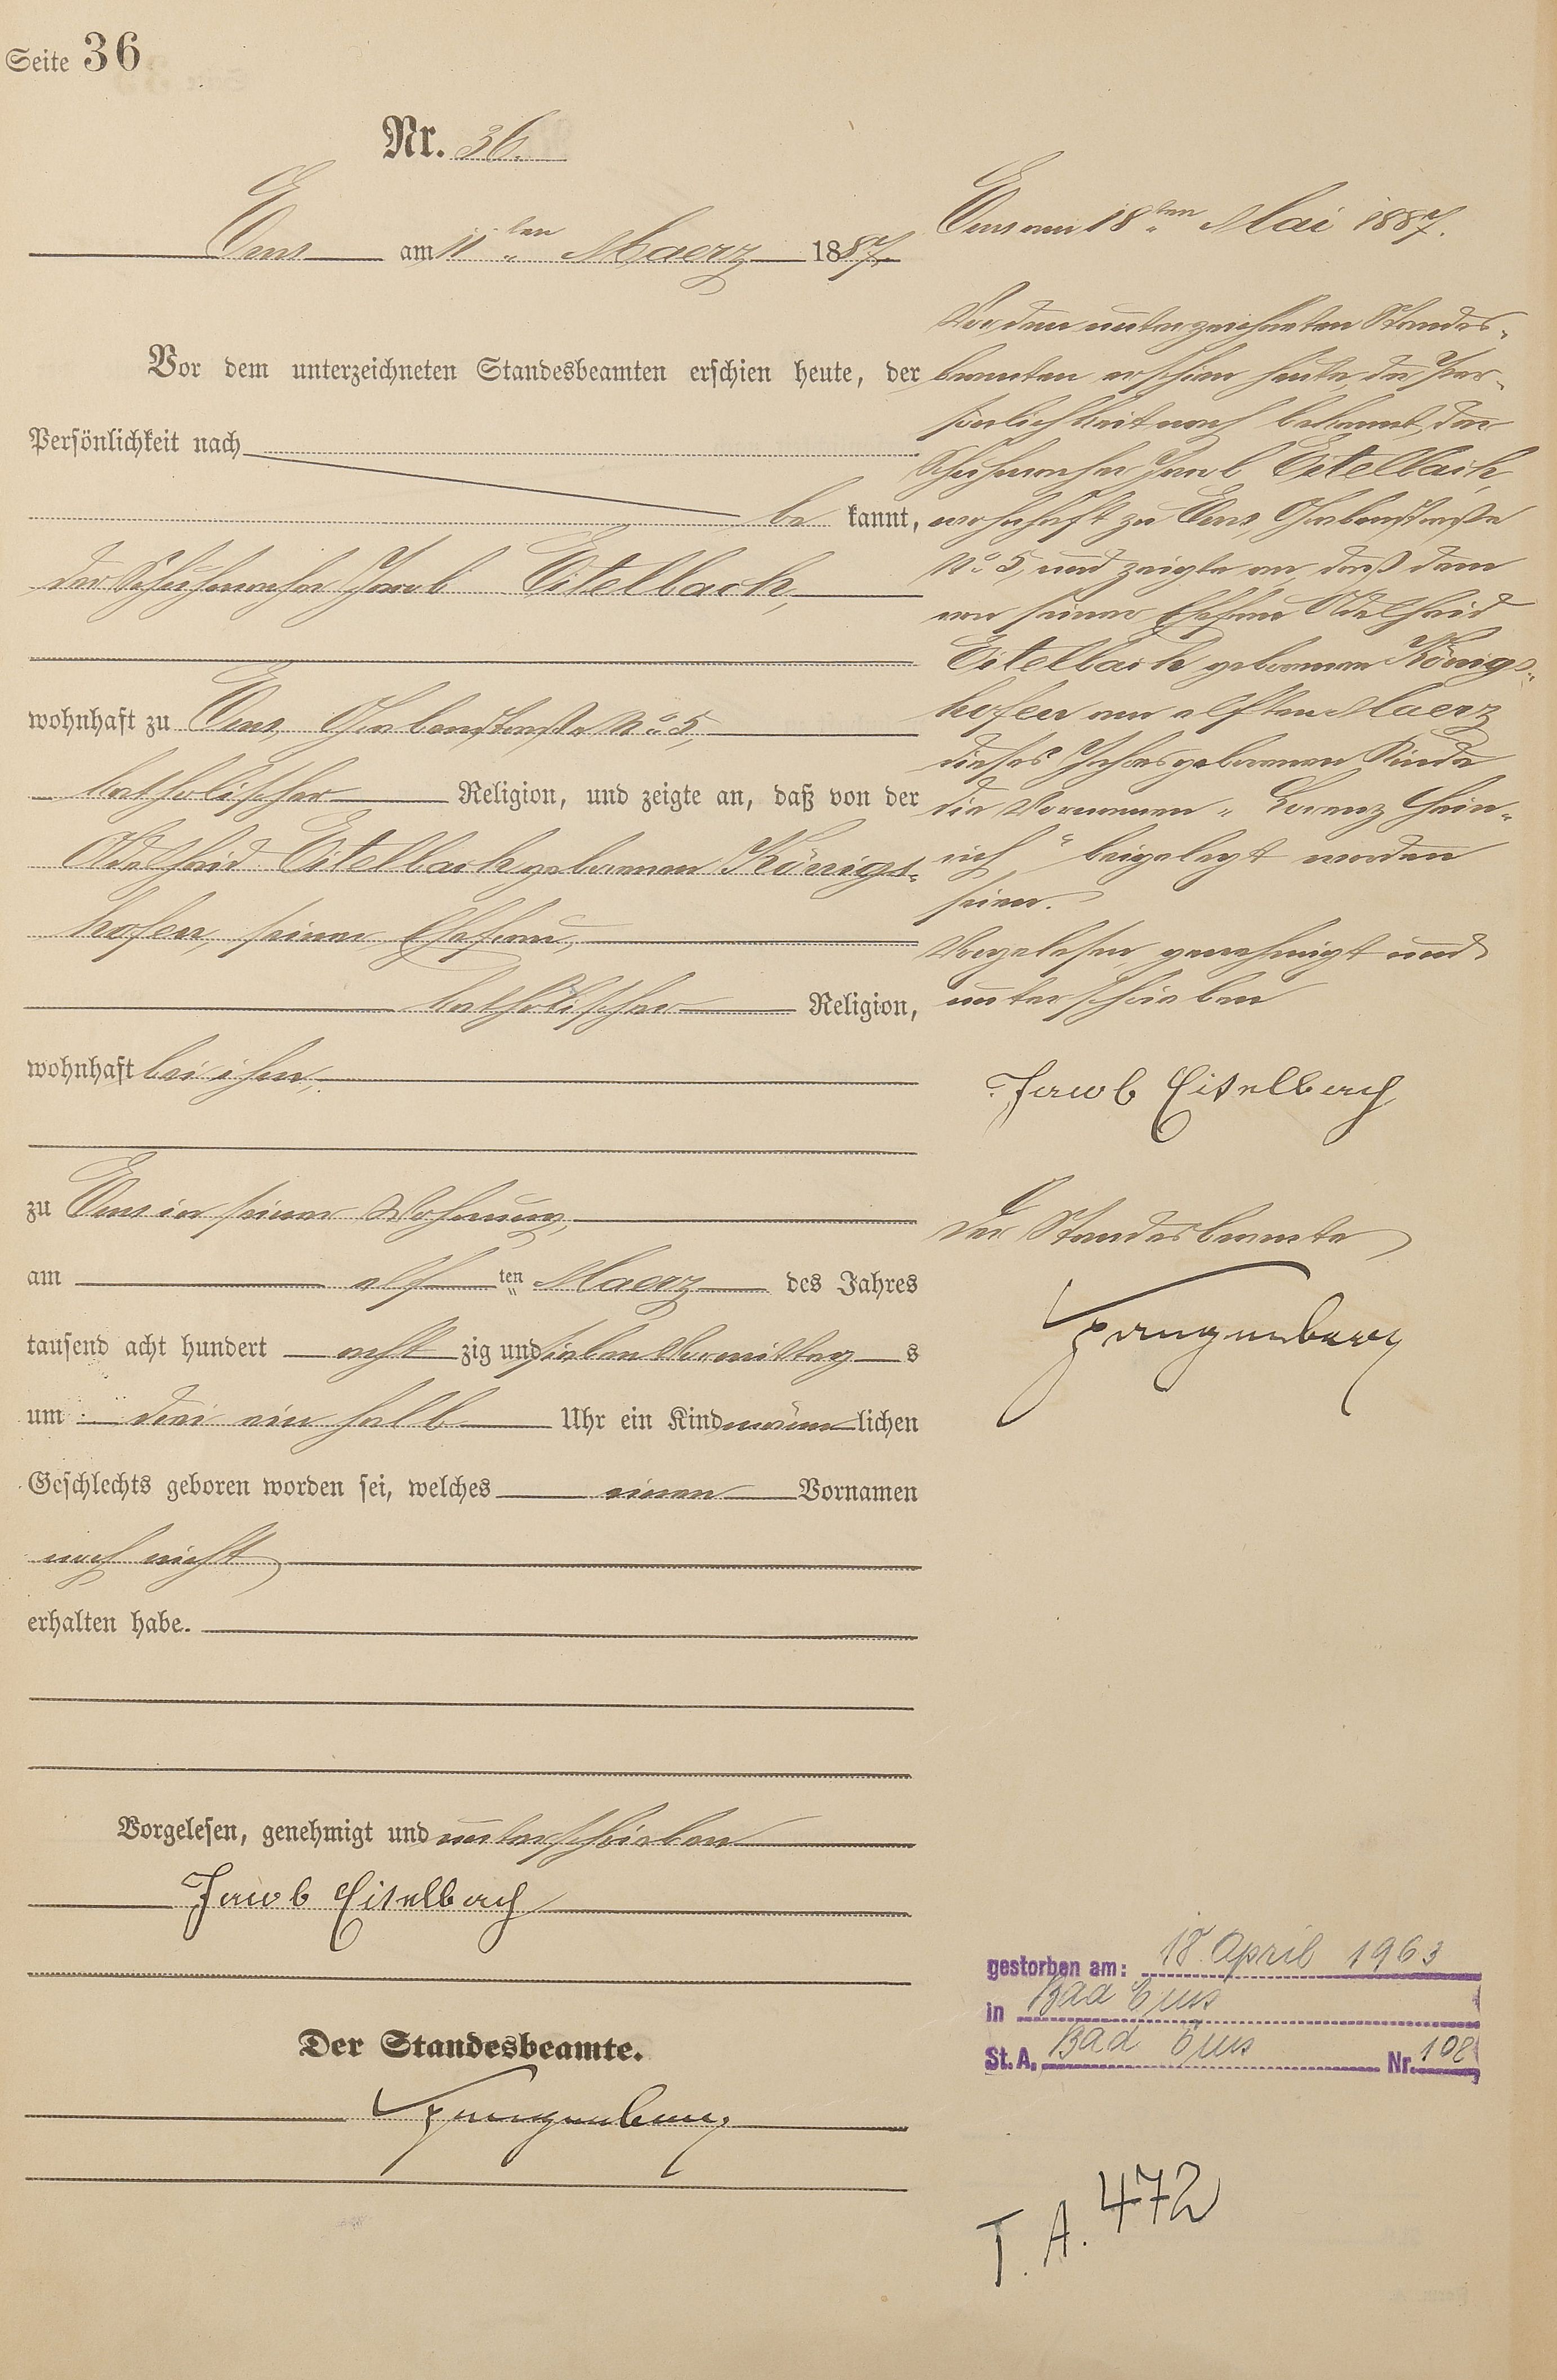 Seite 36
Nr. 36.
Ems am 11ten Maerz 1887.
Vor dem unterzeichneten Standesbeamten erschien heute, der
Persönlichkeit nach
be kannt,
der Schuhmacher Jacob Eitelbach,
wohnhaft zu Ems, Grabenstraße No 5,
katholischer Religion, und zeigte an, daß von der
Adelheid Eitelbach geborenen Königs-
hofen, seiner Ehefrau,
katholischer Religion,
wohnhaft bei ihm,
zu Ems in seiner Wohnung,
am elf ten Maerz des Jahres
tausend acht hundert acht zig und sieben Vormittag s
um drei ein halb Uhr ein Kind männ lichen
Geschlechts geboren worden sei, welches einen Vornamen
noch nicht
erhalten habe.
Vorgelesen, genehmigt und unterschrieben
Jacob Eitelbach
Der Standesbeamte.
Spangenberg
Ems am 18ten Mai 1887.
Vor dem unterzeichneten Standes-
beamten erschien heute, der Per-
sönlichkeit nach bekannt, der
Schuhmacher Jacob Eitelbach,
wohnhaft zu Ems, Grabenstraße
No 5, und zeigte an, daß dem
von seiner Ehefrau Adelheid
Eitelbach geborenen Königs-
hofen am elften Maerz
dieses Jahres geborenen Kinde
die Vornamen „Lorenz Hein-
rich" beigelegt worden
seien.
Vorgelesen, genehmigt und
unterschrieben
Jacob Eitelbach
Der Standesbeamte
Spangenberg
gestorben am: 18. April 1963
in Bad Ems
St. A. Bad Ems Nr. 108
T. A. 472